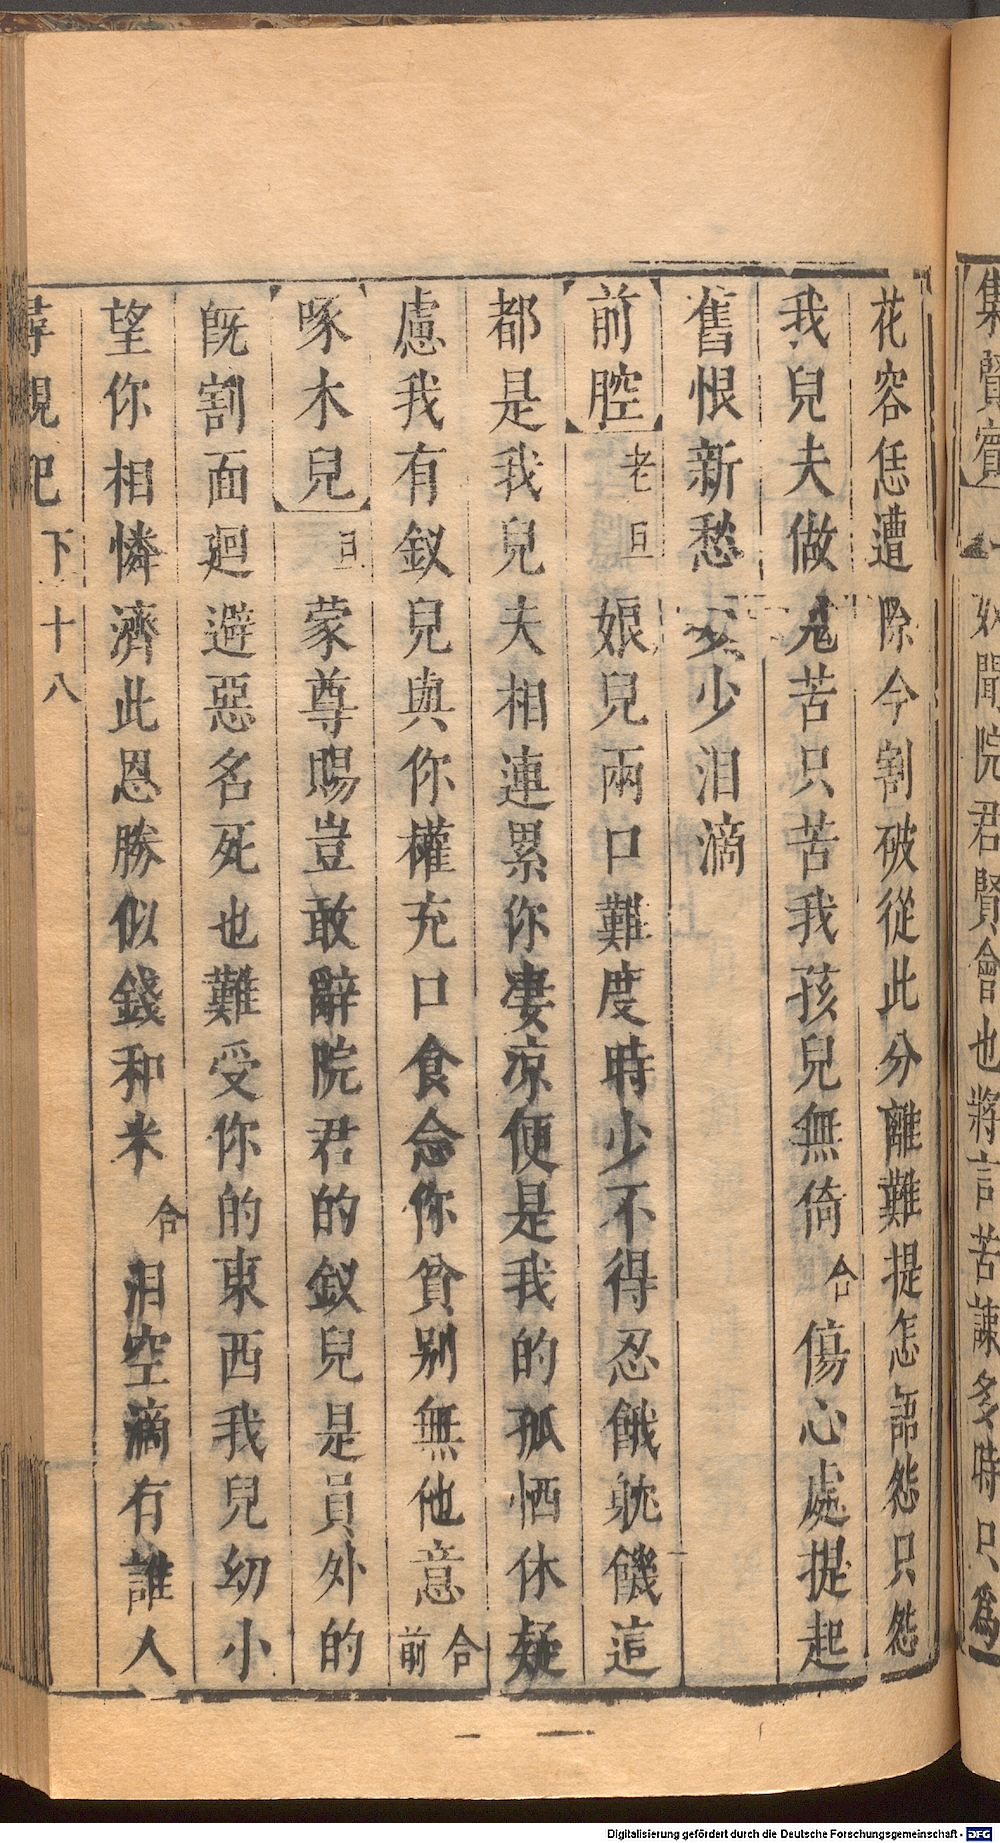 集賢賓
奴聞院君賢會也將言苦諫多時只為
花容恁遭際今割破從此分離難提怎語怨只怨
我兒夫做鬼苦只苦我孩兒無倚合傷心處提起
舊恨新愁交少泪滴
前腔老旦娘兒兩口難度時少不得忍餓躭饑這
都是我兒夫相連累你凄凉便是我的孤恓休疑
慮我有釵兒與你權充口食念你貧别無他意合前
啄木兒旦蒙尊賜豈敢辭院君的釵兒是員外的
旣割面廻避惡名死也難受你的東西我兒幼小
望你相憐濟此恩勝似錢和米合泪空滴有誰人
尋親記 下 十八
Digitalisierung gefördert durch die Deutsche Forschungsgemeinschaft - DFG